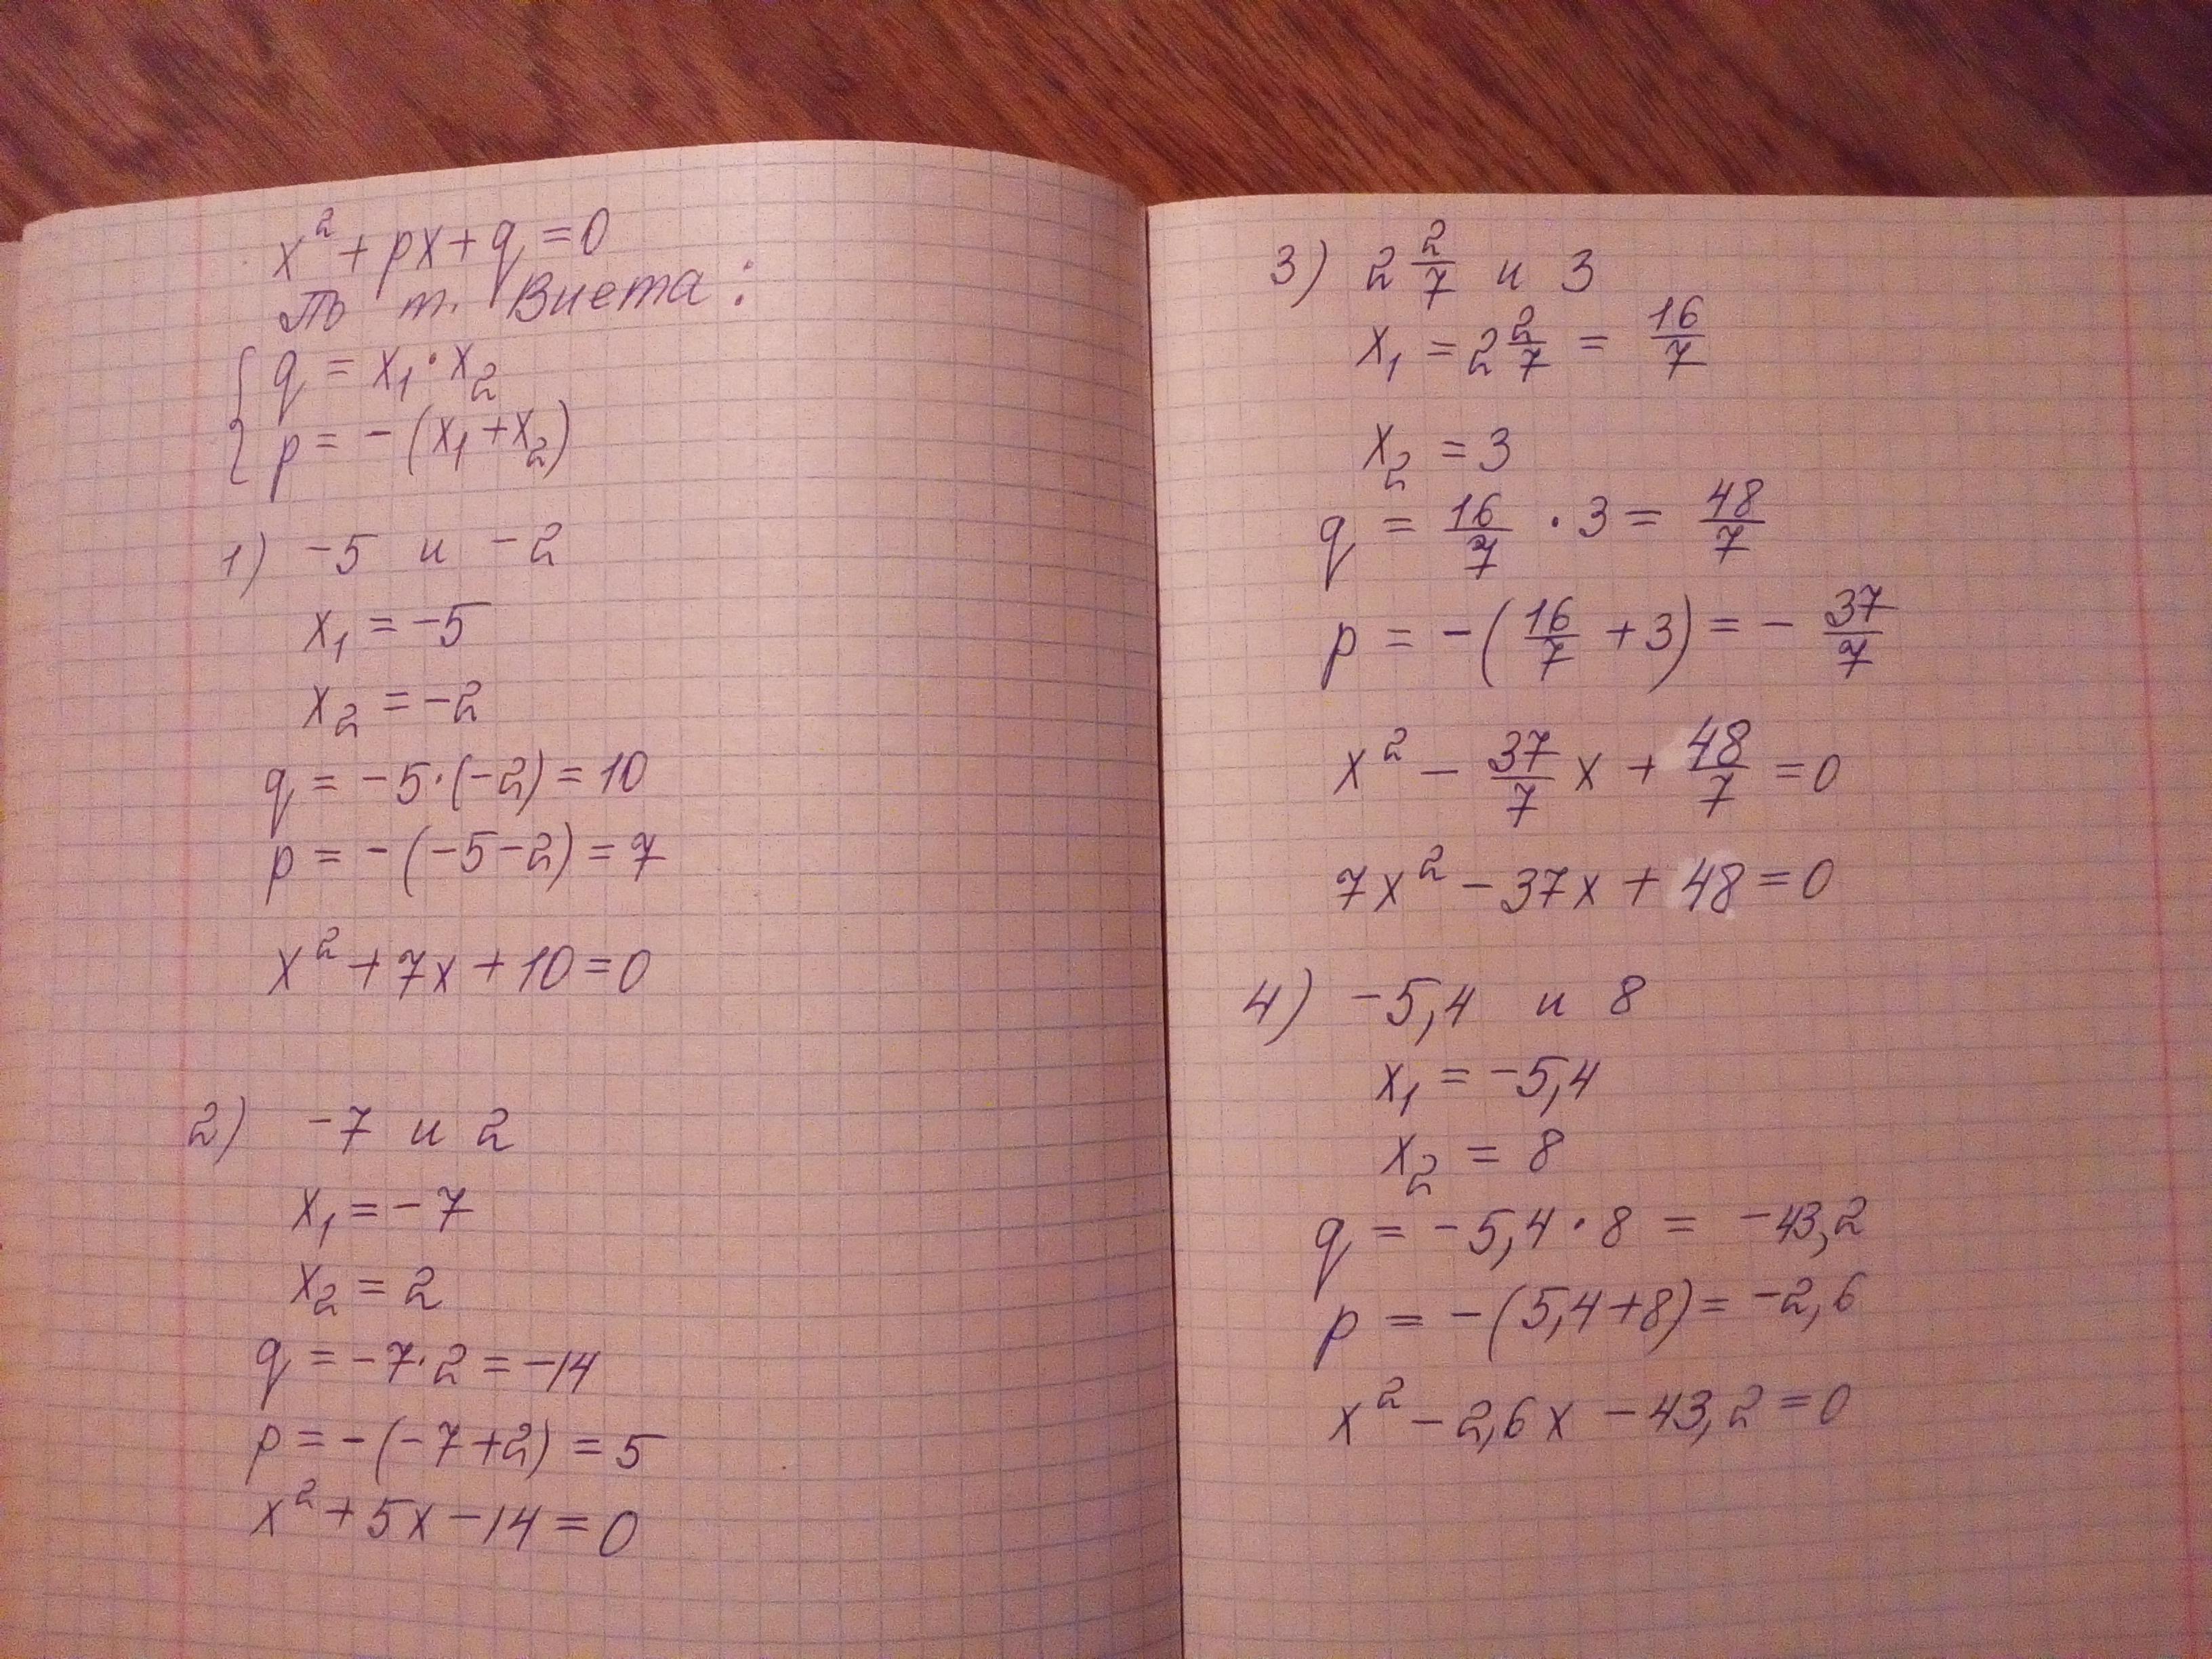 x² + px + q = 0
По т. Виета:
q = x₁ · x₂
p = - (x₁ + x₂)
1) -5 и -2
x₁ = -5
x₂ = -2
q = -5·(-2) = 10
p = -(-5-2) = 7
x² + 7x + 10 = 0
2) -7 и 2
x₁ = -7
x₂ = 2
q = -7·2 = -14
p = -(-7+2) = 5
x² + 5x - 14 = 0
3) 2 2/7 и 3
x₁ = 2 2/7 = 16/7
x₂ = 3
q = 16/7 · 3 = 48/7
p = -(16/7 + 3) = - 37/7
x² - 37/7 x + 48/7 = 0
7x² - 37x + 48 = 0
4) -5,4 и 8
x₁ = -5,4
x₂ = 8
q = -5,4 · 8 = -43,2
p = -(5,4+8) = -2,6
x² - 2,6x - 43,2 = 0